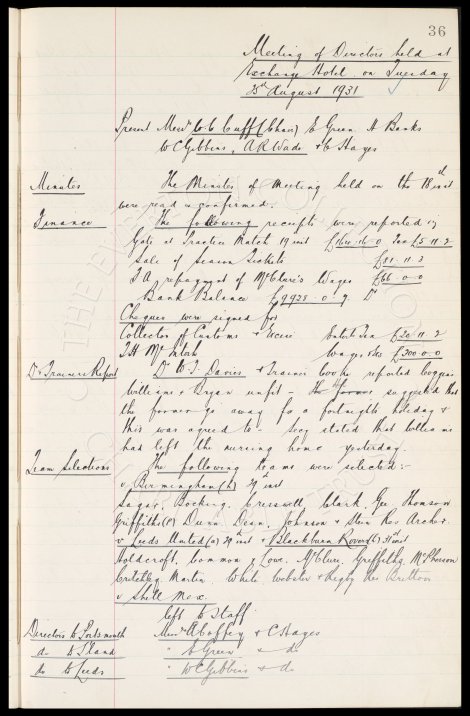 36
Meeting of Directors held at
Exchange Hotel on Tuesday
25th August 1931
Present Messrs W. C. Cuff (Chair) E Green H Banks
W C Gibbins, A R Wade & C Hayes
Minutes The Minutes of Meeting held on the 18th inst
were read & confirmed.
Finance The following receipts were reported :-
Gate at Practice Match 19 inst £164.16.0 Tax £5.11.2
Sale of Season Tickets £91.11.3
F A repayment of McClure's Wages £66-0-0
Bank Balance £9928-0-9 Dr
Cheques were signed for
Collector of Customs & Excise Entert Tax £20.11.2
T H McIntosh Wages &es £300.0.0
Dr & Trainers Report Dr W. J. Davies & Trainer Cooke reported Coggins
Williams & Bryan unfit - the former suggested that
the former go away for a fortnights holiday &
this was agreed to - Secy stated that Williams
had left the nursing home yesterday.
Team Selections The following teams were selected :-
v Birmingham (h) 29th inst
Sagar, Bocking, Cresswell, Clark, Gee, Thomson
Griffiths (P) Dunn, Dean, Johnson & Stein Res Archer.
v Leeds United (a) 29th inst & Blackburn Rovers (h) 31st inst
Holdcroft, Common & Lowe, McClure, Griffiths, McPherson
Critchley, Martin, White, Webster & Rigby Res Britton
v Shell Mex.
left to Staff.
Directors to Portsmouth Messrs A Coffey & C Hayes
do to S'land " E Green & do
do to Leeds " W C Gibbins & do